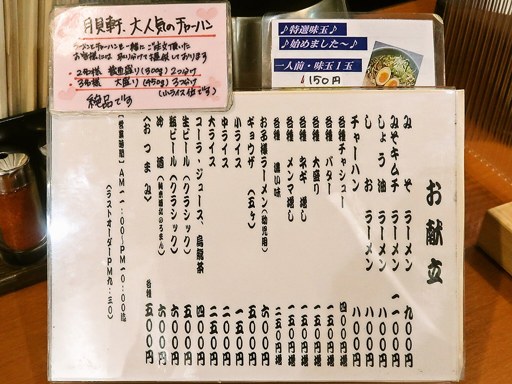 月見軒. 大人気のチャーハン
ラーメンとチャーハンを一緒にご注文頂いた
お客様には取り分けて提供しております
・2名様 普通盛り(300g) 2つ分け
・3名様 大盛り(450g) 3つ分け
絶品です (小ライス位です)
♪特選味玉♪
♪始めました～♪
一人前・味玉1玉
150円
お献立
みそラーメン 九〇〇円
みそキムチラーメン 一一〇〇円
しょう油ラーメン 八〇〇円
しおラーメン 八〇〇円
チャーハン 八〇〇円
各種チャシュー 四〇〇円増
各種バター 一五〇円増
各種大盛り 一五〇円増
各種ネギ増し 一五〇円増
各種メンマ増し 一五〇円増
各種濃い味
お子様ラーメン(幼児用) 六〇〇円
ギョウザ(五ヶ) 五〇〇円
小ライス 一五〇円
中ライス 二〇〇円
大ライス 二五〇円
コーラ・ジュース、烏龍茶 四〇〇円
生ビール(クラシック) 五〇〇円
瓶ビール(クラシック) 六〇〇円
冷酒 六〇〇円
《おつまみ》 各種 五〇〇円
《営業時間》AM一一:〇〇～PM一〇:〇〇迄
(ラストオーダーPM九:三〇)